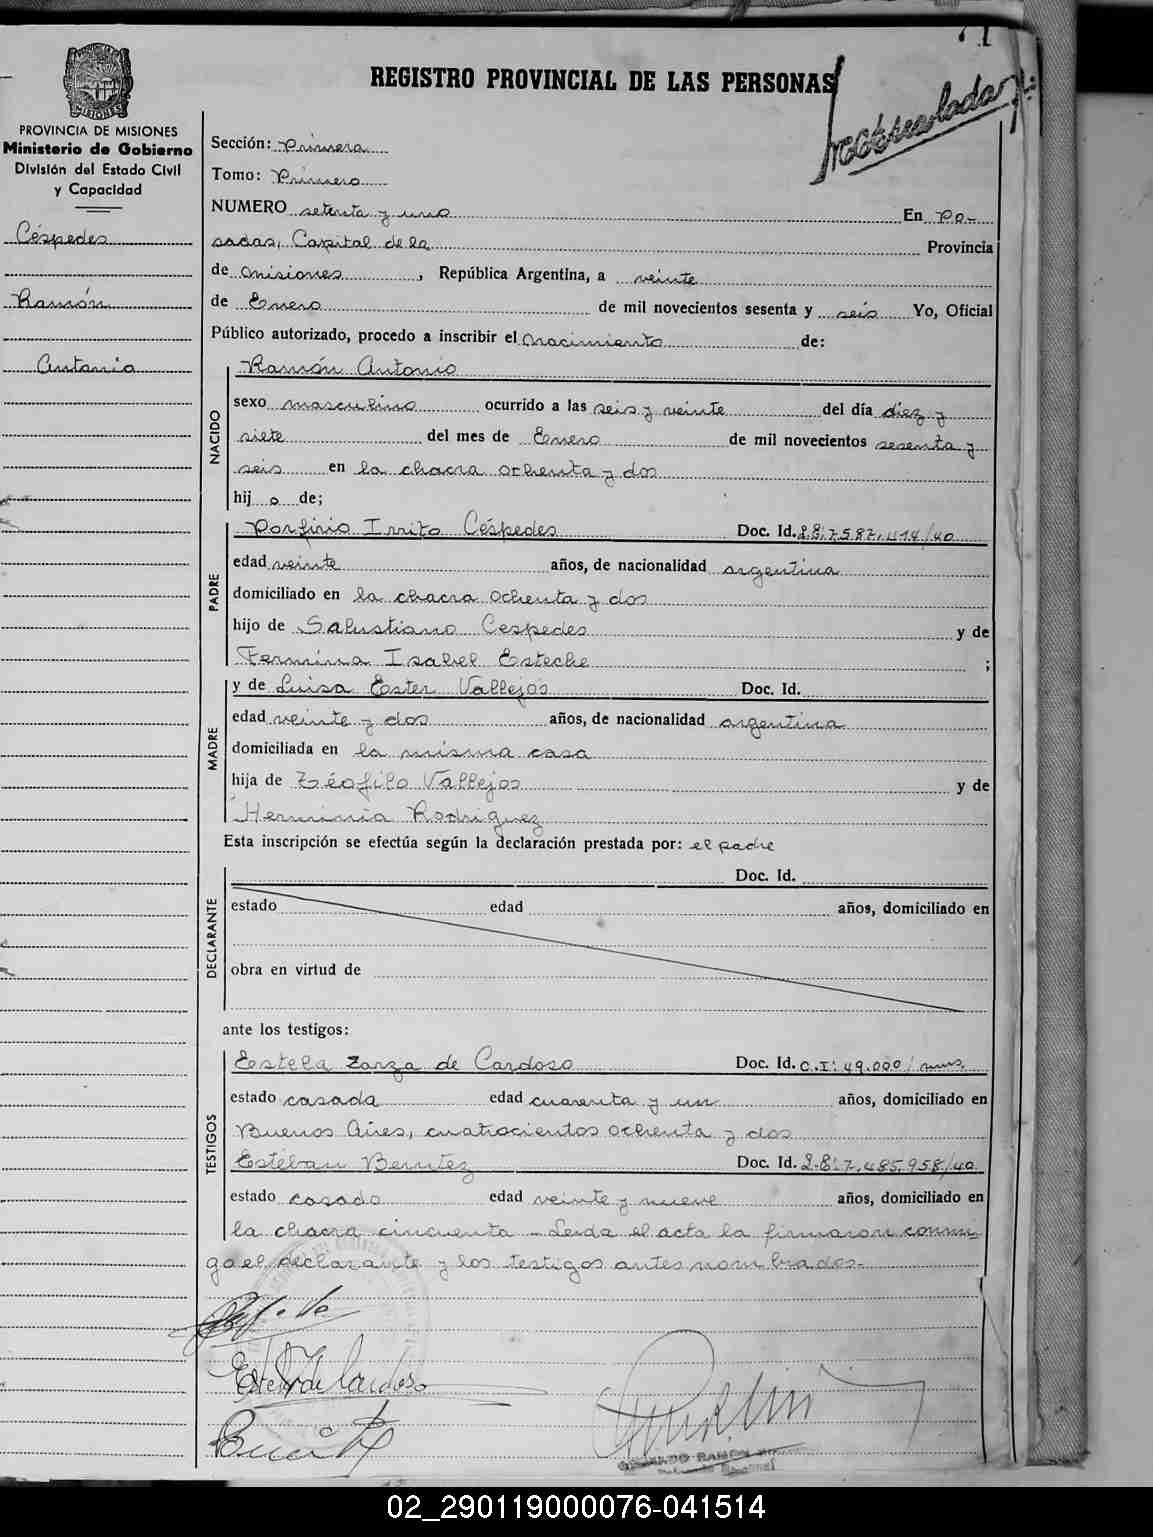 REGISTRO PROVINCIAL DE LAS PERSONAS
PROVINCIA DE MISIONES
Ministerio de Gobierno
División del Estado Civil
y Capacidad
Céspedes
Ramón
Antonio
Sección: Primera
Tomo: Primero
NUMERO setenta y uno En Po-
sadas, Capital de la Provincia
de Misiones, República Argentina, a veinte
de Enero de mil novecientos sesenta y seis Yo, Oficial
Público autorizado, procedo a inscribir el Nacimiento de:
NACIDO
Ramón Antonio
sexo masculino ocurrido a las seis y veinte del día diez y
siete del mes de Enero de mil novecientos sesenta y
seis en la chacra ochenta y dos
hijo de;
PADRE
Porfirio Irrito Céspedes Doc. Id.
edad veinte años, de nacionalidad argentina
domiciliado en la chacra ochenta y dos
hijo de Salustiano Cespedes y de
Fermina Isabel Esteche ;
MADRE
y de Luisa Ester Vallejos Doc. Id.
edad veinte y dos años, de nacionalidad argentina
domiciliada en la misma casa
hija de Teófilo Vallejos y de
Herminia Rodriguez
Esta inscripción se efectúa según la declaración prestada por: el padre
DECLARANTE
Doc. Id.
estado edad años, domiciliado en
obra en virtud de
ante los testigos:
TESTIGOS
Estela Zarza de Cardoso Doc. Id. C.I: 49.000/ mns.
estado casada edad cuarenta y un años, domiciliado en
Buenos Aires, cuatrocientos ochenta y dos
Estéban Benitez Doc. Id. 2.8:7.485.958/40
estado casado edad veinte y nueve años, domiciliado en
la chacra cincuenta - Leida el acta la firmaron conmi-
go el declarante y los testigos antes nombrados.-
02_290119000076-041514